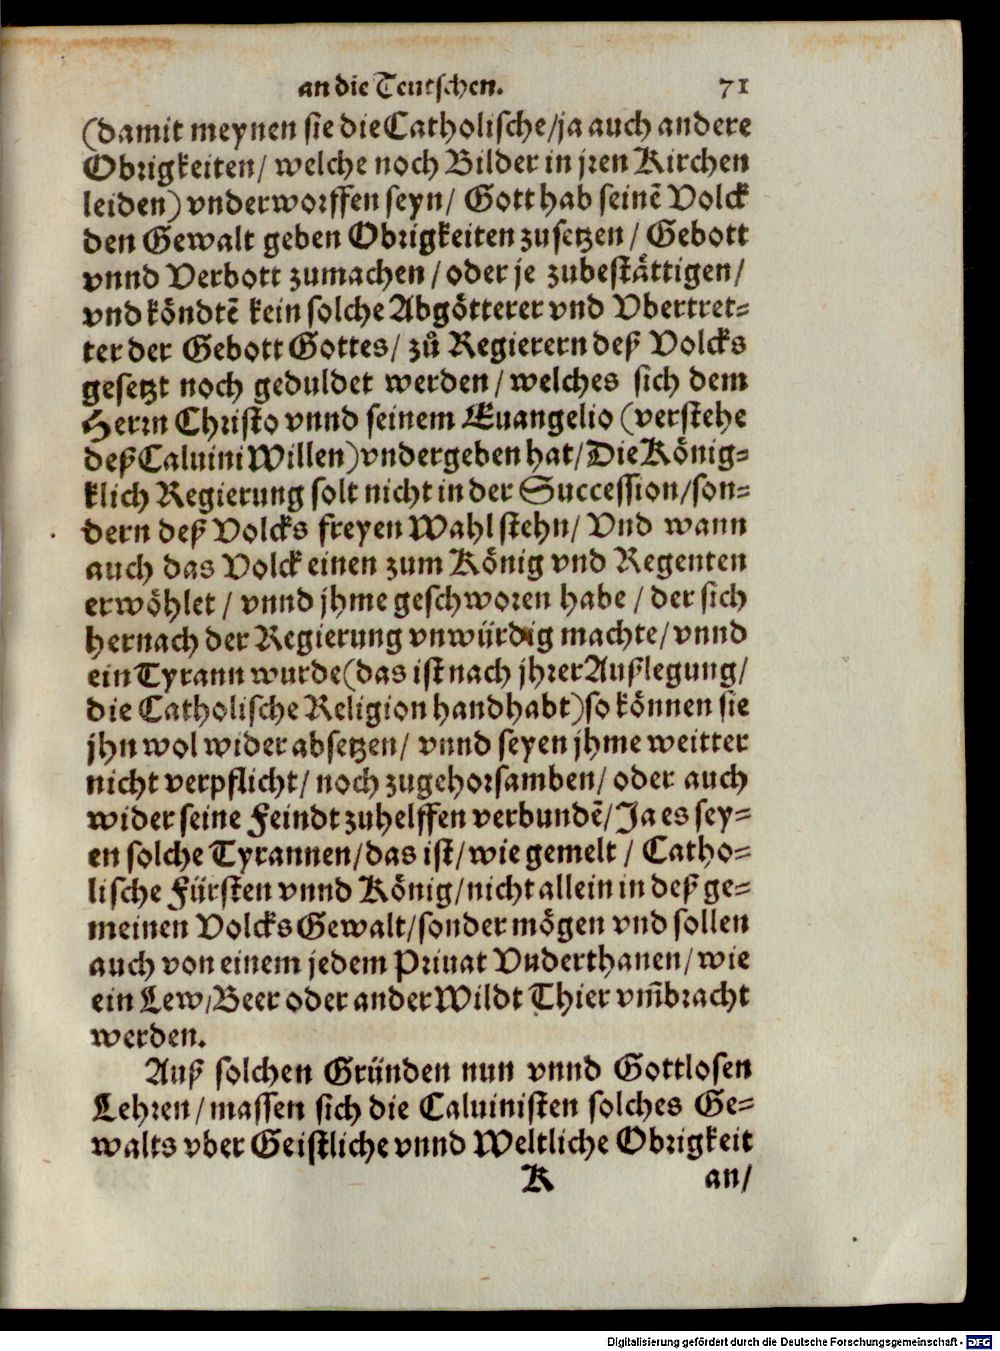 an die Teutschen. 71
(damit meynen sie die Catholische/ja auch andere
Obrigkeiten/ welche noch Bilder in jren Kirchen
leiden) vnderworffen seyn/ Gott hab seinẽ Volck
den Gewalt geben Obrigkeiten zusetzen / Gebott
vnnd Verbott zumachen / oder je zubestättigen/
vnd köndtẽ kein solche Abgötterer vnd Vbertret=
ter der Gebott Gottes/ zů Regierern deß Volcks
gesetzt noch geduldet werden / welches sich dem
Herrn Christo vnnd seinem Euangelio (verstehe
deß Caluini Willen) vndergeben hat/ Die König=
klich Regierung solt nicht in der Succession/son=
dern deß Volcks freyen Wahl stehn/ Vnd wann
auch das Volck einen zum König vnd Regenten
erwöhlet / vnnd jhme geschworen habe / der sich
hernach der Regierung vnwürdig machte/ vnnd
ein Tyrann wurde (das ist nach jhrer Außlegung/
die Catholische Religion handhabt) so können sie
jhn wol wider absetzen/ vnnd seyen jhme weitter
nicht verpflicht/ noch zugehorsamben/ oder auch
wider seine Feindt zuhelffen verbundẽ/ Ja es sey=
en solche Tyrannen/das ist/ wie gemelt / Catho=
lische Fürsten vnnd König/nicht allein in deß ge=
meinen Volcks Gewalt/sonder mögen vnd sollen
auch von einem jedem Priuat Vnderthanen/ wie
ein Lew/Beer oder ander Wildt Thier vm̃bracht
werden.
Auß solchen Gründen nun vnnd Gottlosen
Lehren / massen sich die Caluinisten solches Ge=
walts vber Geistliche vnnd Weltliche Obrigkeit
K an/
Digitalisierung gefördert durch die Deutsche Forschungsgemeinschaft - DFG